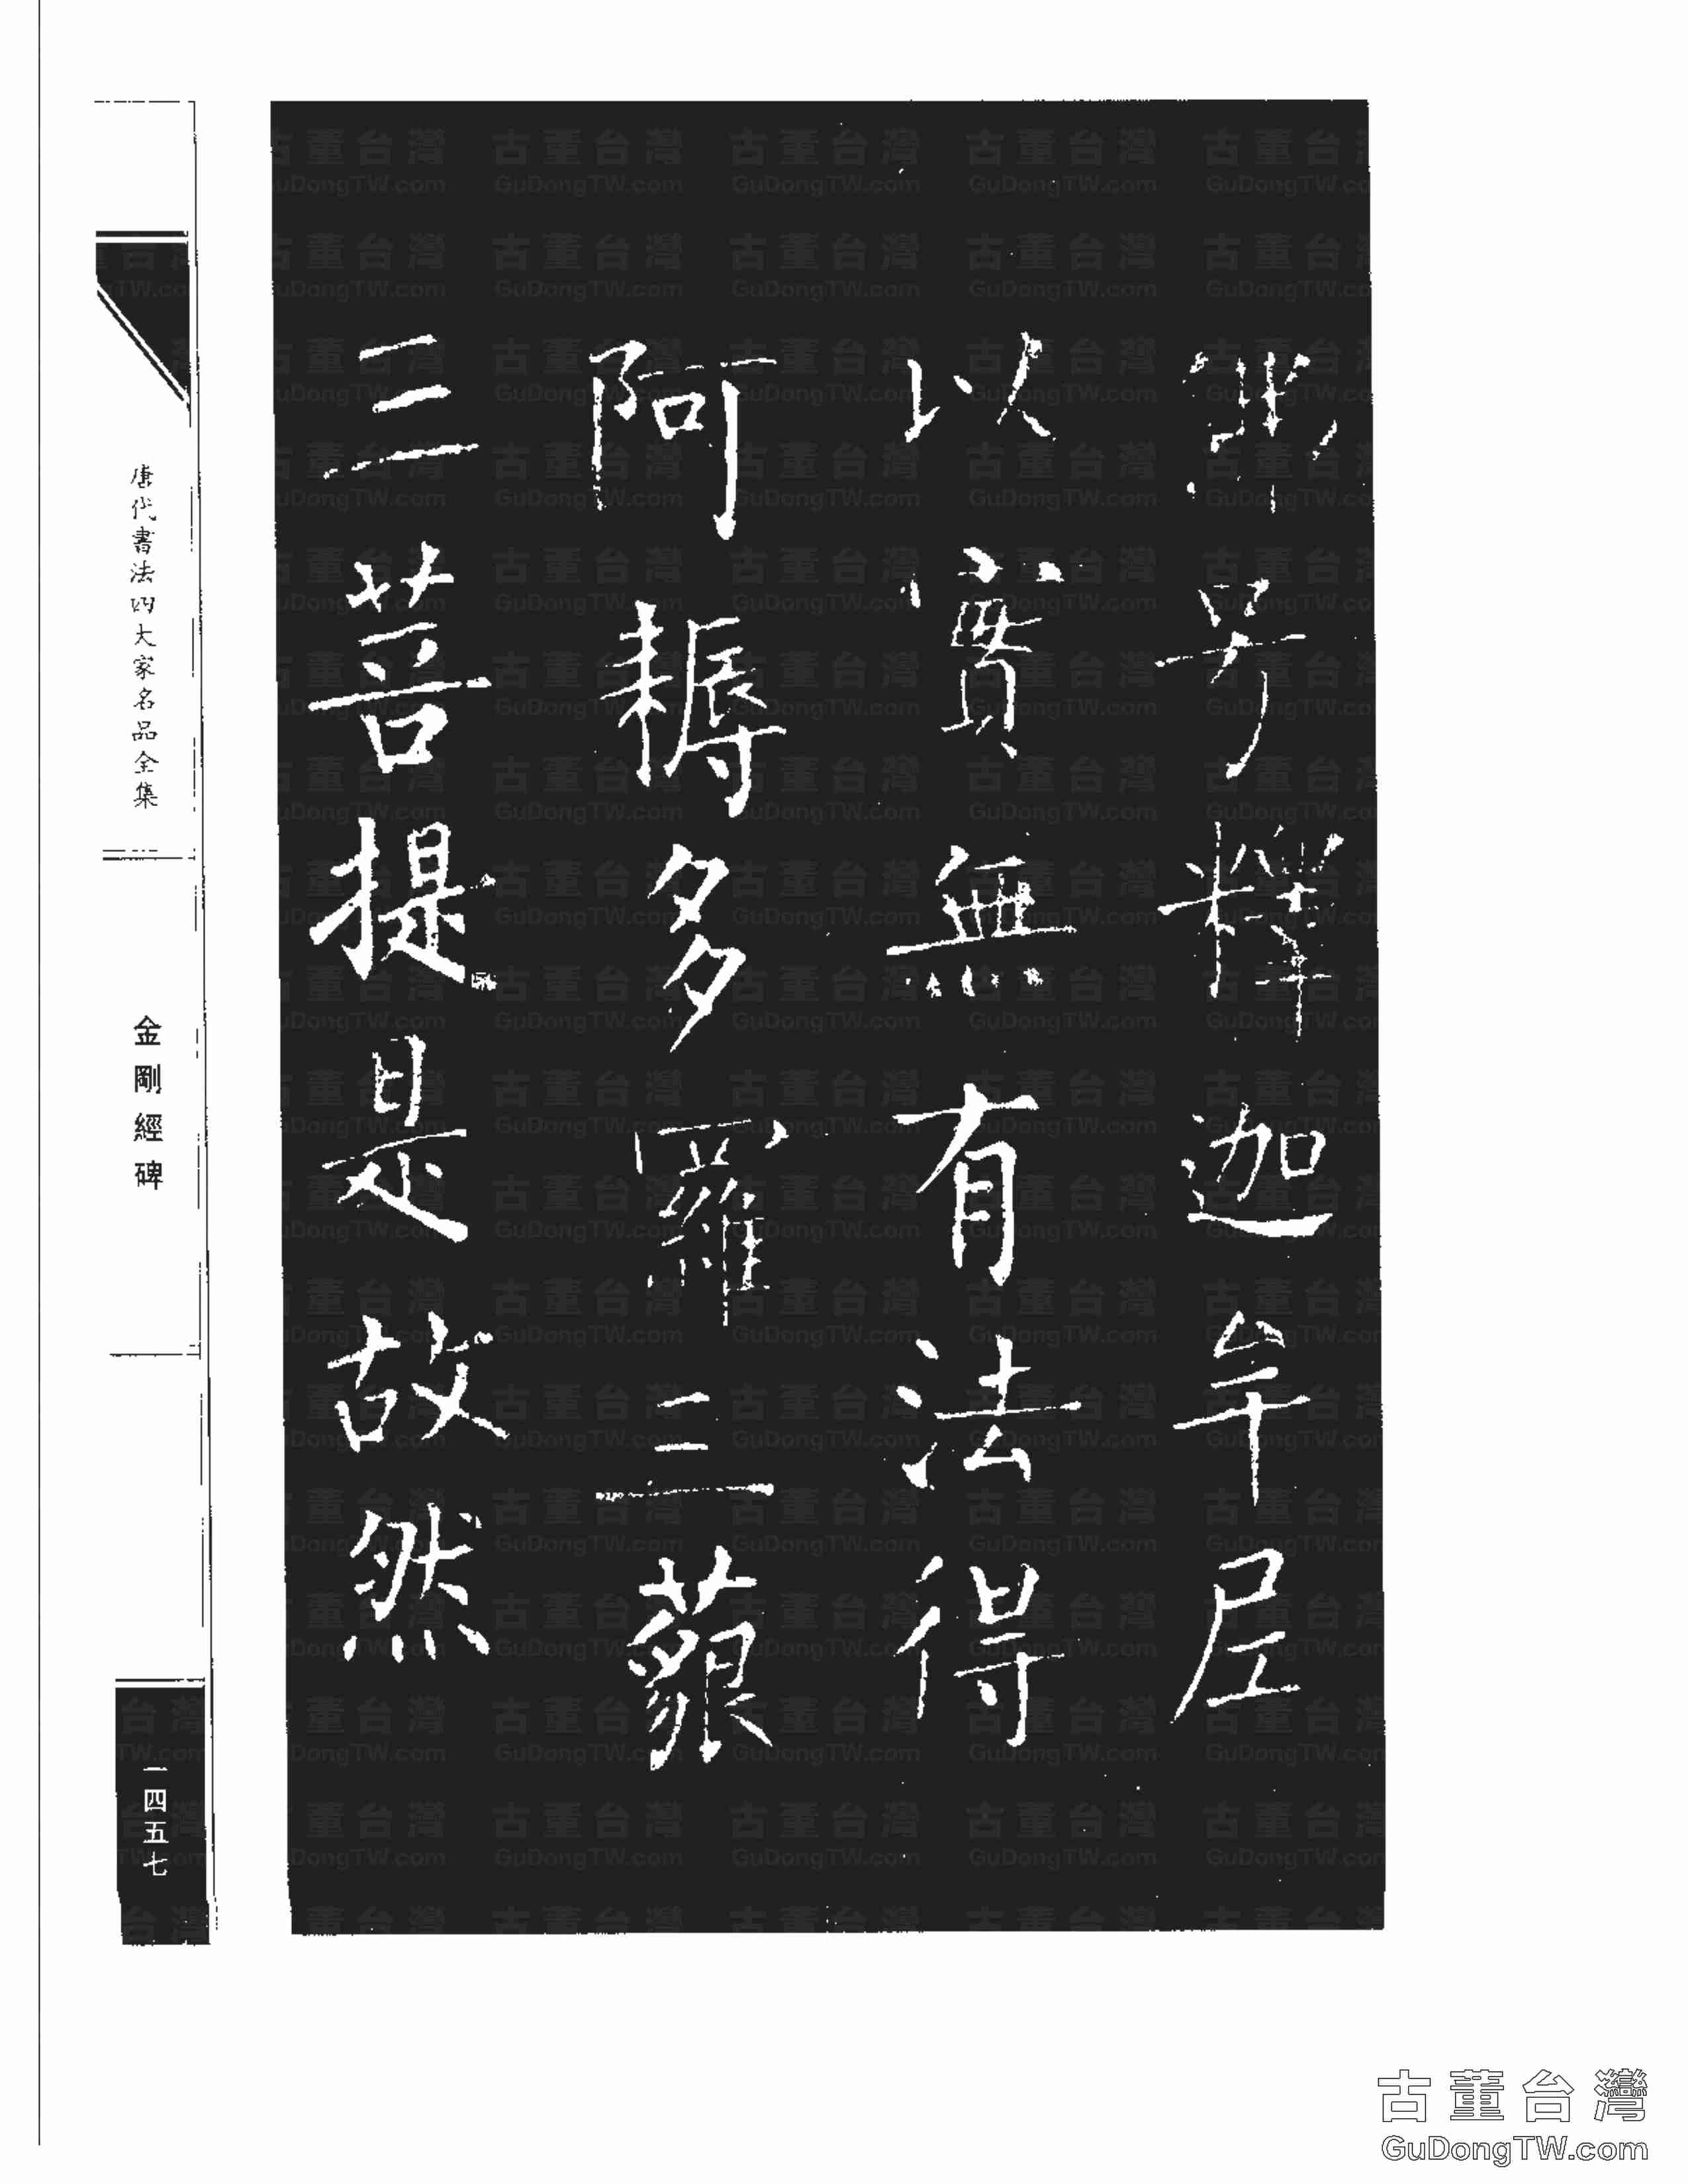 佛号釋迦牟尼
以實無有法得
阿耨多羅三藐
三菩提是故然
唐代書法四大家名品全集
金剛經碑
一四五七
古董台灣
GuDongTW.com